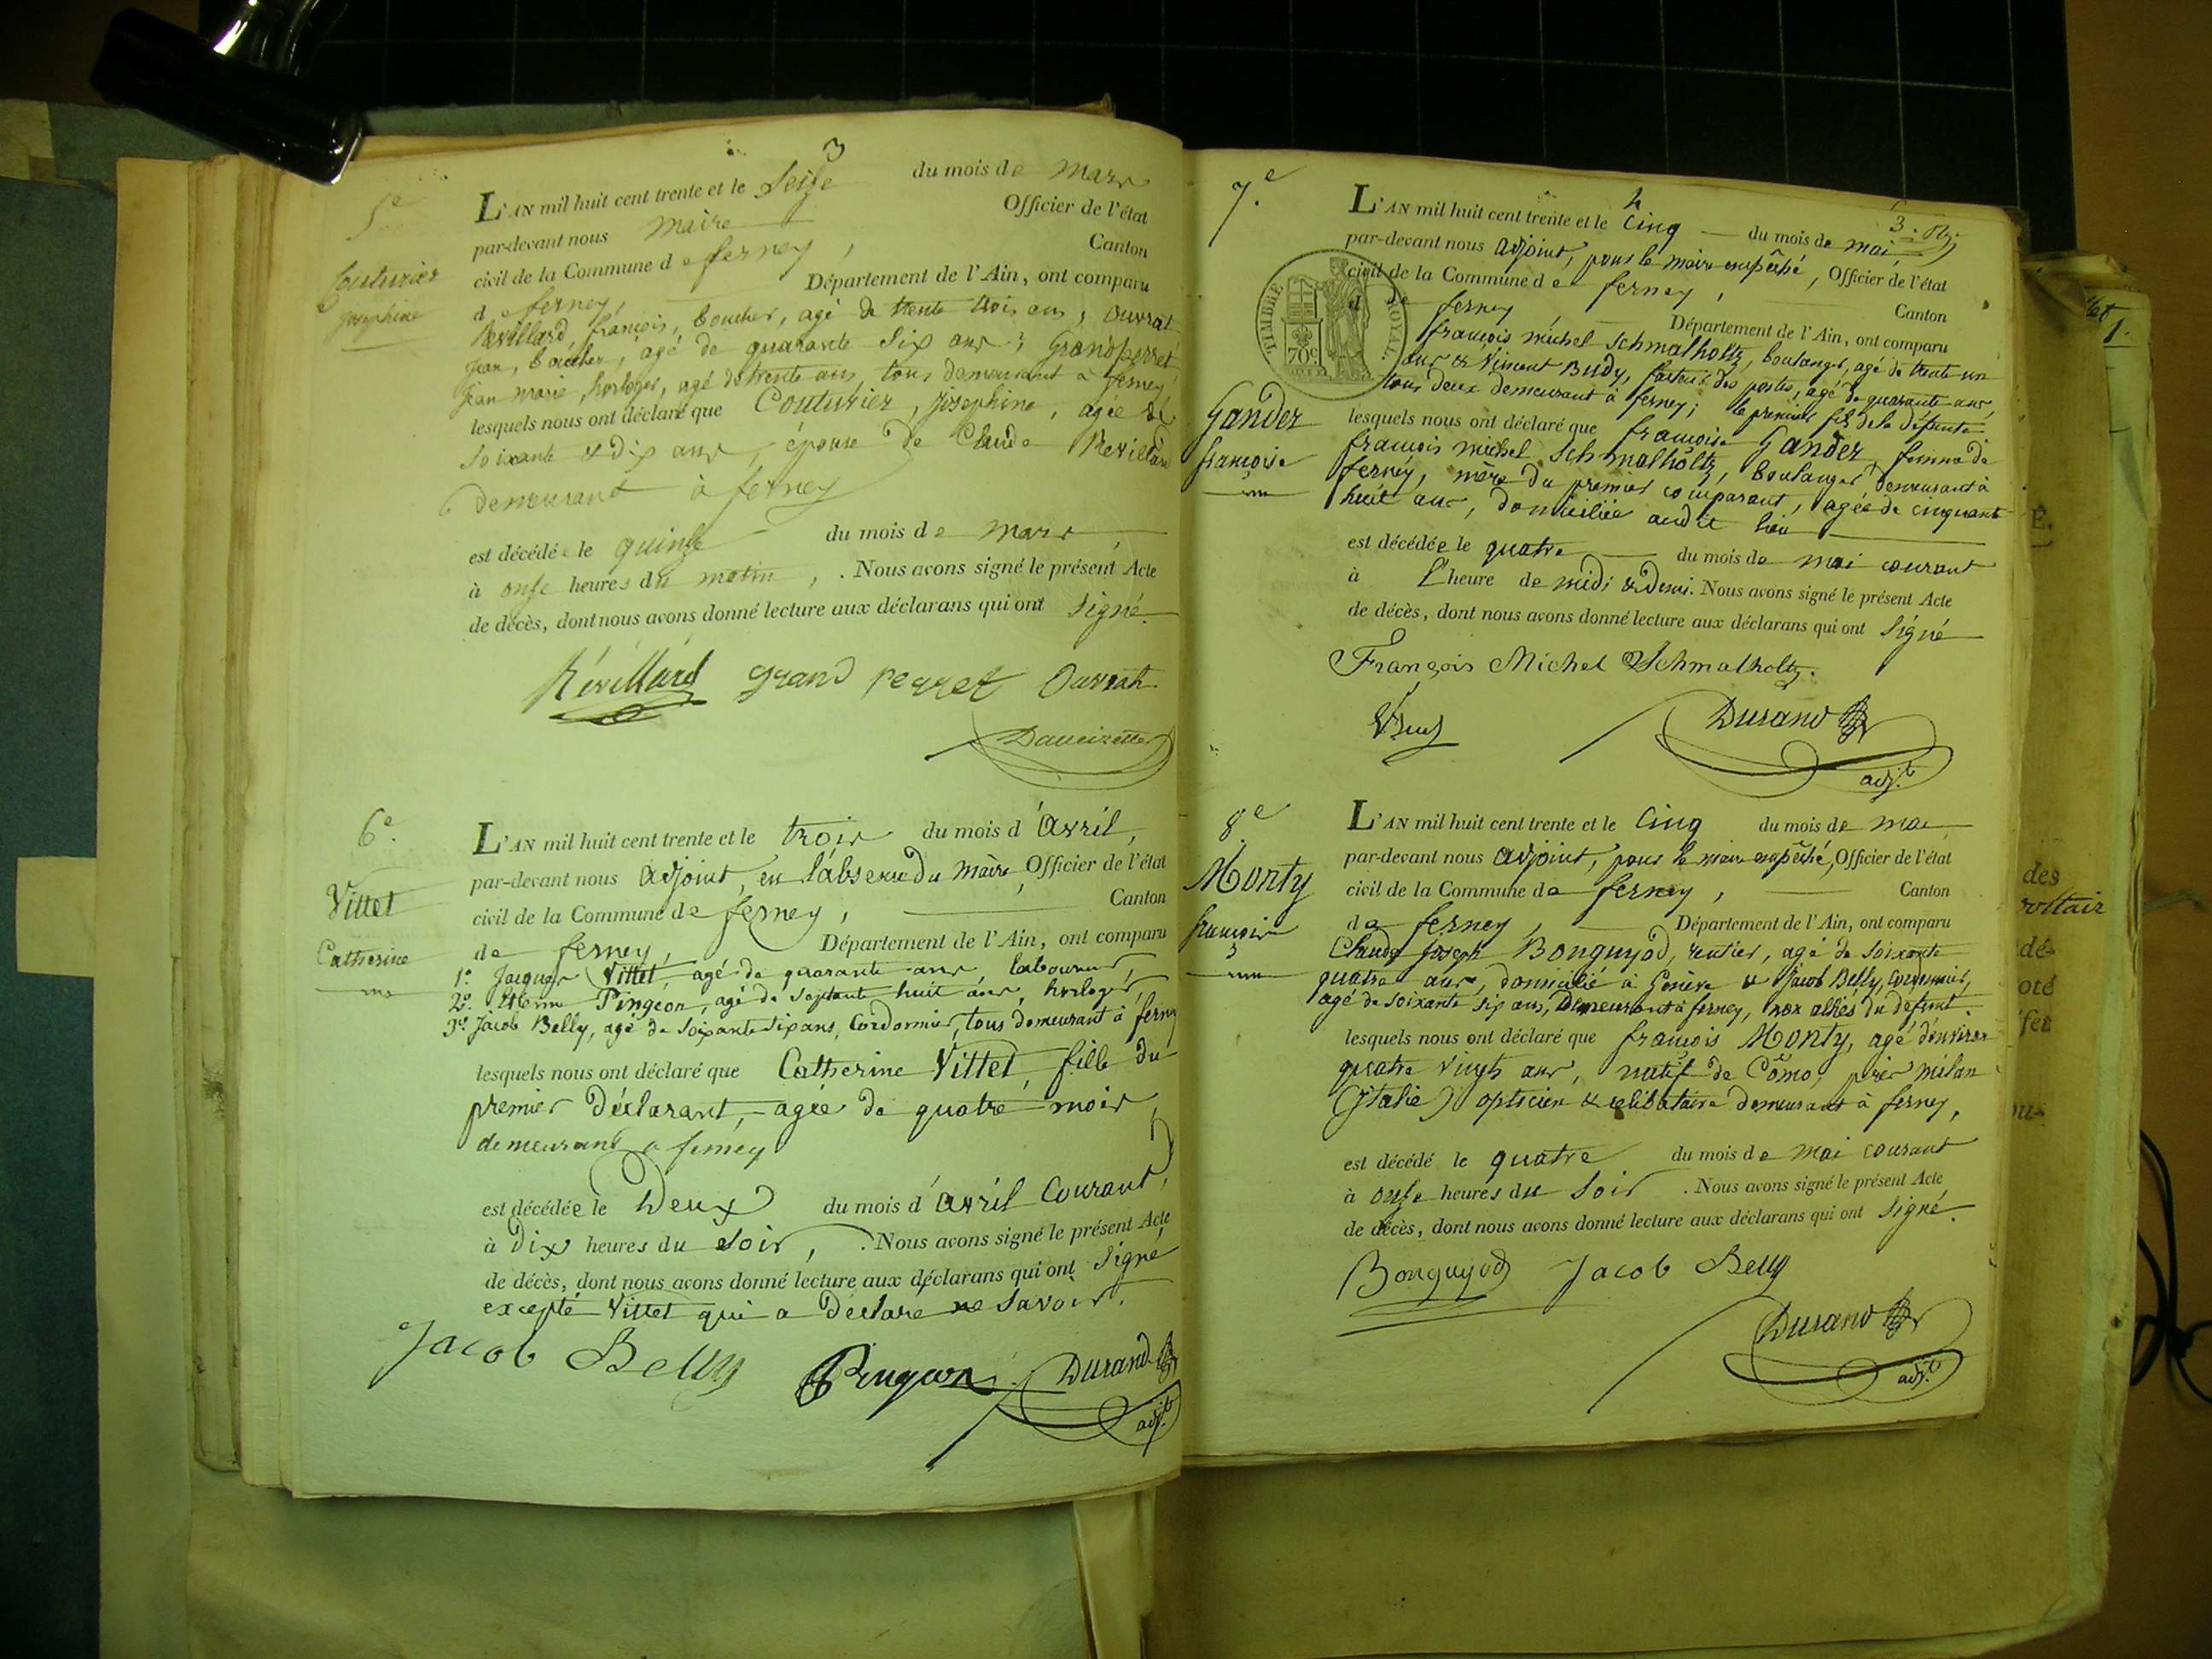 3
5e
Couturier
Josephine
L'AN mil huit cent trente et le Seize du mois de Mars
par-devant nous Maire Officier de l'état
civil de la Commune de ferney, Canton
de ferney, Département de l'Ain, ont comparu
Revillard, françois, boucher, agé de trente trois ans, Ouvrat
Jean, boucher, agé de quarante Six ans; Grandperret
Jean marie, horloger, agé de trente ans, tous demeurant à ferney,
lesquels nous ont déclaré que Couturier, Josephine, agée de
Soixante & dix ans, épouse de Claude Revillard
demeurant à ferney
est décédée le quinze du mois de Mars
à onze heures du matin, . Nous avons signé le présent Acte
de décès, dont nous avons donné lecture aux déclarans qui ont Signé.
Révillard grand perret Ouvrat
6e.
Vittet
Catherine
L'AN mil huit cent trente et le trois du mois d'Avril,
par-devant nous adjoint, en l'absence du Maire, Officier de l'état
civil de la Commune de ferney, Canton
de ferney, Département de l'Ain, ont comparu
1°. Jacques Vittet, agé de quarante ans, laboureur,
2°. Pingeon, agé de Septante huit ans, horloger,
3°. Jacob Belly, agé de Soixante Six ans, Cordonnier, tous demeurant à ferney
lesquels nous ont déclaré que Catherine Vittet, fille du
premier Déclarant, agée de quatre mois,
demeurant a ferney
est décédée le Deux du mois d'avril Courant,
à Dix heures du Soir, . Nous avons signé le présent Acte
de décès, dont nous avons donné lecture aux déclarans qui ont Signé
excepté Vittet qui a Déclaré ne Savoir.
Jacob Belly Pingeon Durand
adj.t
7.e
4
3.
TIMBRE ROYAL
70c
Gander
françoise
L'AN mil huit cent trente et le Cinq du mois de mai
par-devant nous adjoint, pour le maire empêché, Officier de l'état
civil de la Commune de ferney, Canton
d ferney, Département de l'Ain, ont comparu
françois michel Schmalholtz, boulanger, agé de trente un
ans & Vincent Budy, facteur des postes, agé de quarante ans,
tous deux demeurant à ferney; le premier fils de la défunte
lesquels nous ont déclaré que françoise Gander, femme de
françois michel Schmalholtz, boulanger demeurant à
ferney, mère du premier comparant, agée de cinquante
huit ans, domiciliée audit lieu
est décédée le quatre du mois de mai courant
à L'heure de midi & demi. Nous avons signé le présent Acte
de décès, dont nous avons donné lecture aux déclarans qui ont Signé
François Michel Schmalholtz.
Durand
adj.t
8e
Monty
françois
L'AN mil huit cent trente et le Cinq du mois de mai
par-devant nous adjoint, pour le maire empêché, Officier de l'état
civil de la Commune de ferney, Canton
de ferney, Département de l'Ain, ont comparu
Claude Joseph Bonguyod, rentier, agé de Soixante
quatre ans, domicilié à Genève & Jacob Belly, Cordonnier,
agé de Soixante Six ans, Demeurant à ferney, non alliés du défunt.
lesquels nous ont déclaré que françois Monty, agé d'environ
quatre vingts ans, natif de Cômo, près milan
(Italie) opticien & celibataire demeurant à ferney,
est décédé le quatre du mois de mai courant
à onze heures du Soir . Nous avons signé le présent Acte
de décès, dont nous avons donné lecture aux déclarans qui ont Signé.
Bonguyod Jacob Belly
Durand
adj.t